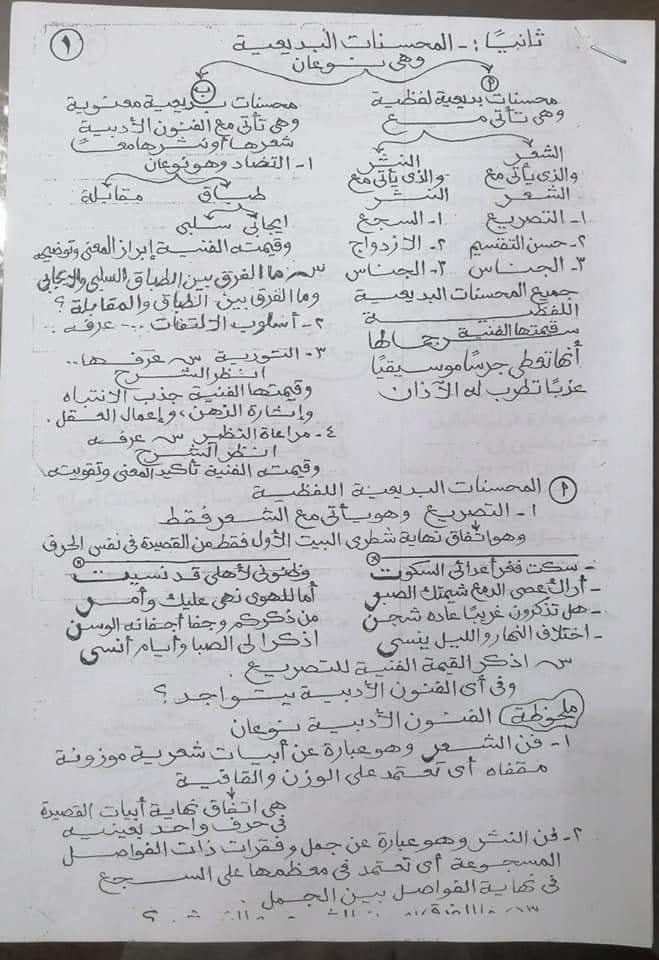 ١
ثانيًا :- المحسنات البديعية
وهى نوعان
أ
محسنات بديعية لفظية
وهى تأتى مع
الشعر
والذى يأتى مع
الشعر
١- التصريع
٢- حسن التقسيم
٣- الجناس
النثر
والذى يأتى مع
النثر
١- السجع
٢- الازدواج
٣- الجناس
جميع المحسنات البديعية
اللفظية
سر جمالها
قيمتها الفنية
أنها تعطى جرسًا موسيقيًا
عذبًا تطرب له الآذان
ب
محسنات بديعية معنوية
وهى تأتى مع الفنون الأدبية
شعرها أو نثرها معًا
١- التضاد وهو نوعان
طباق
مقابلة
ايجابى سلبى
وقيمته الفنية إبراز المعنى وتوضيحه
س ما الفرق بين الطباق السلبى والايجابى
وما الفرق بين الطباق والمقابلة ؟
٢- أسلوب الالتفات ... عرفه ..
٣- التورية س عرفها ..
انظر الشرح
وقيمتها الفنية جذب الانتباه
وإثارة الذهن، وإعمال العقل .
٤- مراعاة النظير س عرفه
انظر الشرح
وقيمته الفنية تأكيد المعنى وتقويته
أ المحسنات البديعية اللفظية
١- التصريع وهو يأتى مع الشعر فقط
وهو اتفاق نهاية شطرى البيت الأول فقط من القصيدة فى نفس الحرف
- سكت فغر أعدائى السكوت وظنونى لأهلى قد نسيت
- أراك عصى الدمع شيمتك الصبر أما للهوى نهى عليك ولا أمر
- هل تذكرون غريبًا عاده شجن من ذكركم وجفا أجفانه الوسن
- اختلاف النهار والليل ينسى اذكرا لى الصبا وأيام أنسى
س اذكر القيمة الفنية للتصريع .
وفى أى الفنون الأدبية يتواجد ؟
ملحوظة الفنون الأدبية نوعان
١- فن الشعر وهو عبارة عن أبيات شعرية موزونة
مقفاه أى تعتمد على الوزن والقافية
هى اتفاق نهاية أبيات القصيدة
فى حرف واحد بعينيه
٢- فن النثر وهو عبارة عن جمل وفقرات ذات الفواصل
المسجوعة أى تعتمد فى معظمها على السجع
فى نهاية الفواصل بين الجمل .